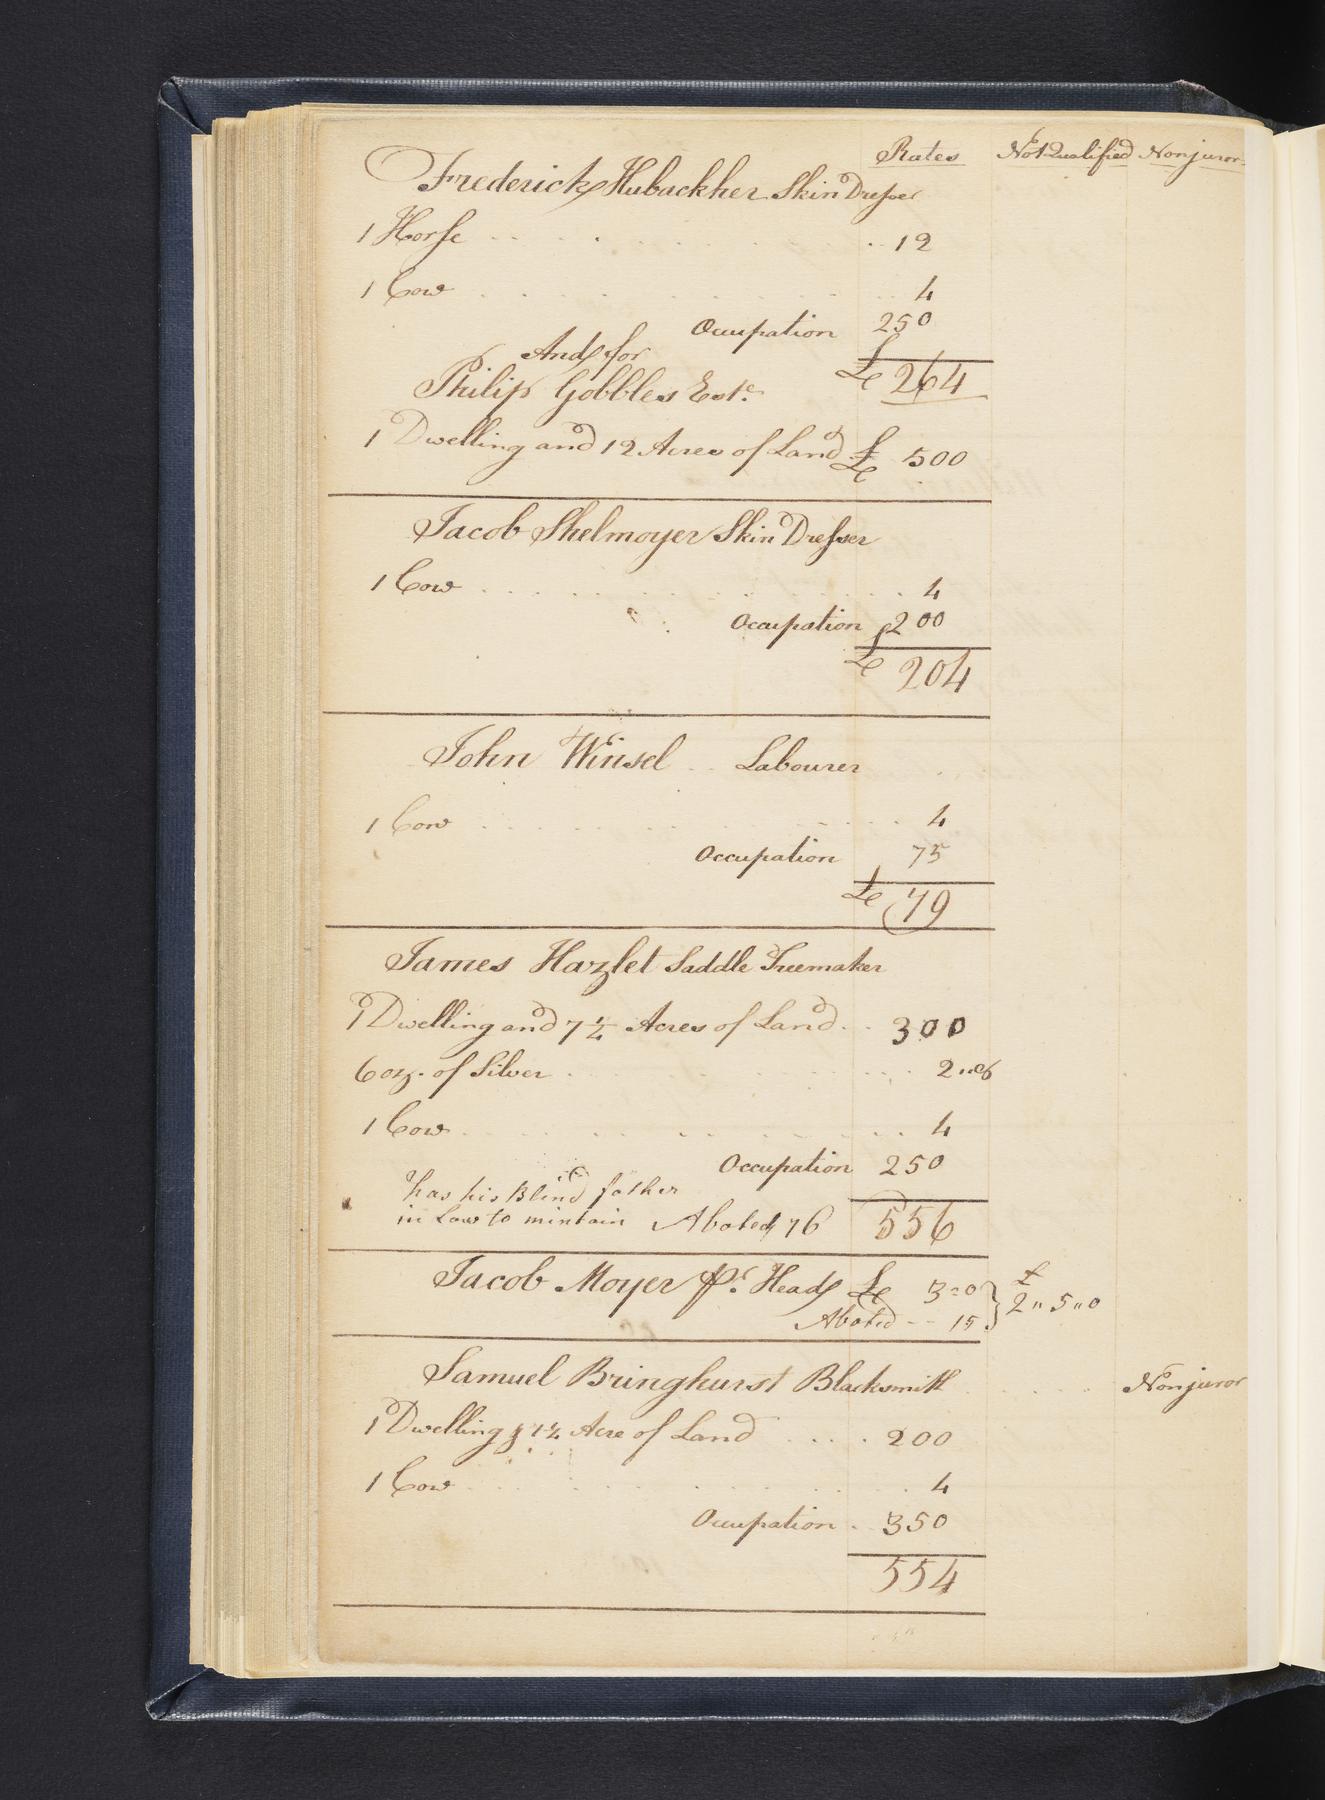 Rates Not Qualified Nonjuror
Frederick Hubackher Skin Dresser
1 Horse 12
1 Cow 4
Occupation 250
And for
£ 264
Philip Gobbles Este.
1 Dwelling and 12 Acres of Land £ 500
Jacob Shelmoyer Skin Dresser
1 Cow 4
Occupation 200
£ 204
John Winsel Labourer
1 Cow 4
Occupation 75
£ 79
James Hazlet Saddle Treemaker
1 Dwelling and 7 1/4 Acres of Land 300
6 oz. of Silver 2
1 Cow 4
Occupation 250
has his Blind father
in Law to mintain Abated 76 556
Jacob Moyer Pr. Head £ 3=0 } £ 2 " 5 " 0
Abated -- 15
Samuel Bringhurst Blacksmith Nonjuror
1 Dwelling & 1 1/4 Acre of Land 200
1 Cow 4
Occupation 350
554